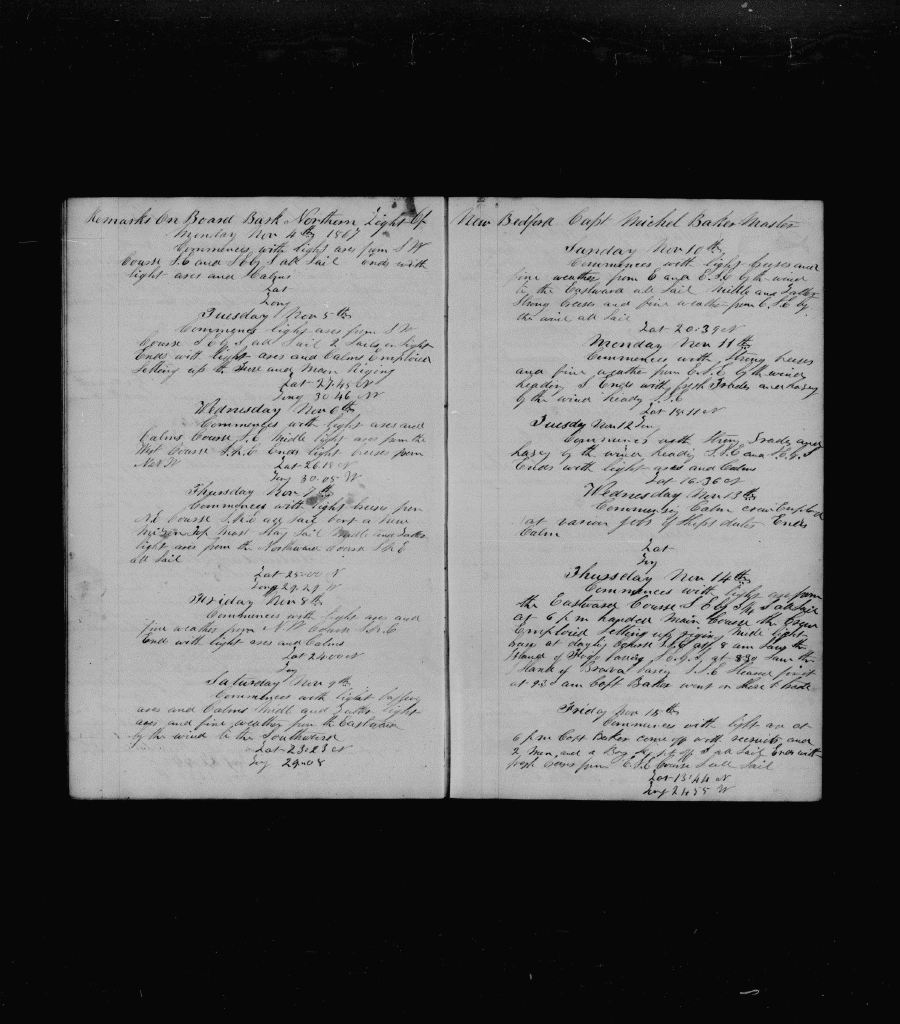 Remarks On Board Bark Northern Light Of
Monday Nov 4th 1867
Commences with light ares from S W
Course S.E and S by E all Sail Ends with
light ares and Calms
Lat
Long
Tuesday Nov 5th
Commences light ares from S W
Course S by E all Sail 2 Sails in Sight
Ends with light ares and Calms Employed
Setting up the and Main Riging
Lat 27.45 N
Long 30.46 W
Wednesday Nov 6th
Commences with light ares and
Calms Course S.E Middle light ares from the
West Course S.S.E Ends light breeses from
N W Lat 26.18 N
Long 30.05 W
Thursday Nov 7th
Commences with light breeses from
N.E Course S.S.E all Sail bent a new
Top Mast Stay Sail Middle and Latter
light ares from the Northward Course S.S.E
all Sail
Lat 25.00 N
Long 29.29 W
Friday Nov 8th
Commences with light ares and
fine weather from N.W Course S.S.E
Ends with light ares and Calms
Lat 24.00 N
Long
Saturday Nov 9th
Commences with light baffling
ares and Calms Middle and Latter light
ares and fine weather from the Eastward
by the wind to the Southward
Lat 23.23 N
Long 29.08
New Bedford Capt Michel Baker Master
Sunday Nov 10th
Commences with light breeses and
fine weather from E and E.S.E by the wind
to the Eastward all Sail Middle and Latter
Strong breeses and fine weather from E.S.E by
the wind all Sail
Lat 20.39 N
Monday Nov 11th
Commences with Strong breeses
and fine weather from E.S.E by the wind
heading S Ends with fresh Trades and hasey
by the wind heading S.S.E
Lat 18.11 N
Tuesday Nov 12 Long
Commences with Strong Trades and
hasey by the wind heading S.S.E and
Ends with light ares and Calms
Lat 16.36 N
Wednesday Nov 13th
Commences Calm crew Employed
at various jobs of Ships duties Ends
Calm
Lat
Long
Thursday Nov 14th
Commences with light ares from
the Eastward Course S E by S 3/4 S all Sail
at 6 p m handed Main Course the Crew
Employed Setting up riging Midle light
ares at daylight Course S.S.E at 8 am Saw the
Island of Fogo baring at 830 Saw the
Island of Brava baring S.S.E Steared for it
at 930 am Capt Baker went on Shore to trade
Friday Nov 15th
Commences with light are at
6 p m Capt Baker come off with recruits and
2 Men and a Boy all Sail Ends with
fresh breeses from E.S.E Course S all Sail
Lat 13.44 N
Long 24.55 W